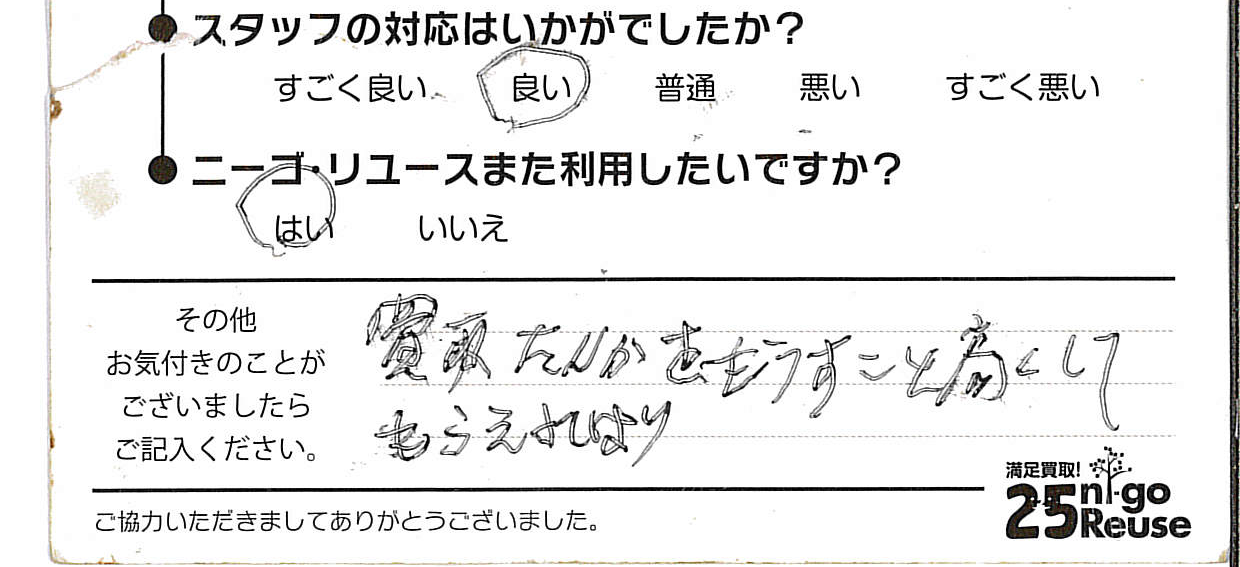 スタッフの対応はいかがでしたか?
すごく良い 良い 普通 悪い すごく悪い
ニーゴ・リユースまた利用したいですか?
はい いいえ
その他
お気付きのことが
ございましたら
ご記入ください。
買取たんかをもうすこと高くして
もらえれば
満足買取!
25 ni-go
Reuse
ご協力いただきましてありがとうございました。